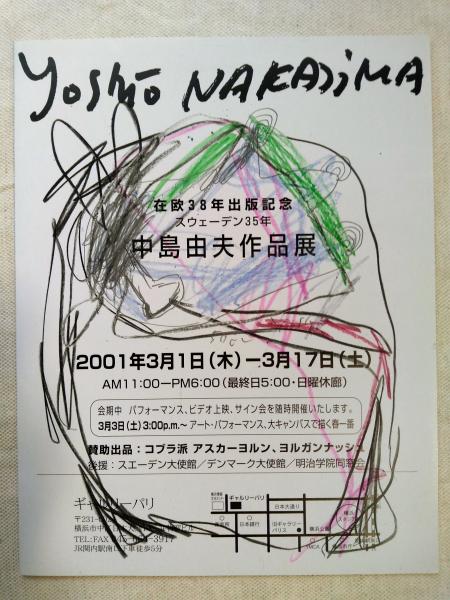 Yoshio NAKAJiMA
在欧38年出版記念
スウェーデン35年
中島由夫作品展
2001年3月1日(木)ー3月17日(土)
AM11:00ーPM6:00(最終日5:00・日曜休廊)
会期中 パフォーマンス、ビデオ上映、サイン会を随時開催いたします。
3月3日(土)3:00p.m.〜アート・パフォーマンス、大キャンバスで描く春一番
賛助出品:コブラ派 アスカーヨルン、ヨルガンナッシュ
後援:スエーデン大使館/デンマーク大使館/明治学院同窓会
ギャルリーパリ
〒231-
横浜市中区
TEL:FAX 045-
JR関内駅南口下車徒歩5分
ギャルリーパリ
日本大通り
日本銀行
旧ギャラリーパリス
横浜公園
YMCA